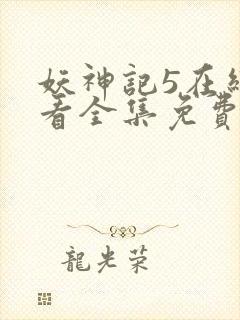 妖神記5在線
看全集免費
龍光荣